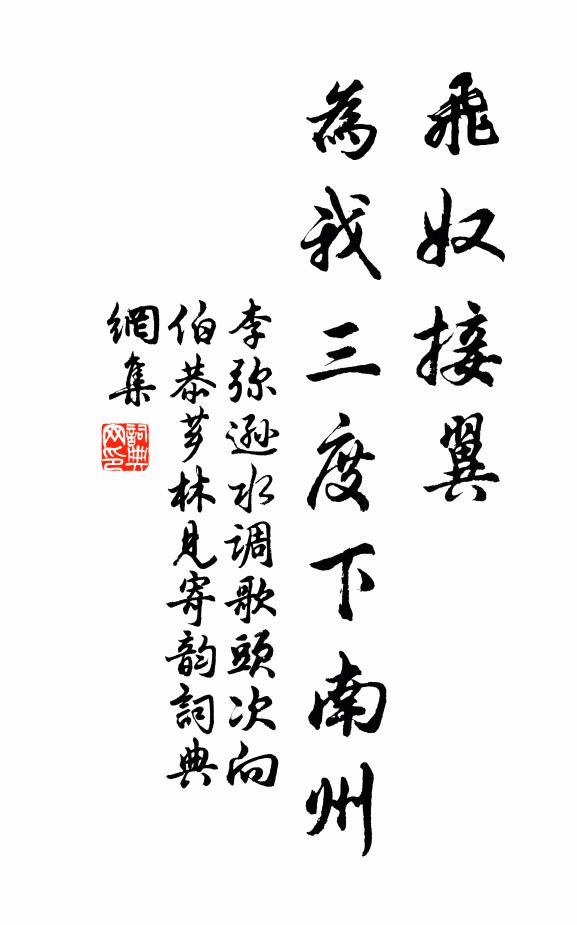 飛奴接翼
為我三度下南州
李弥遜水調歌頭次向
伯恭芗林見寄韵詞典
網集
詞典網印